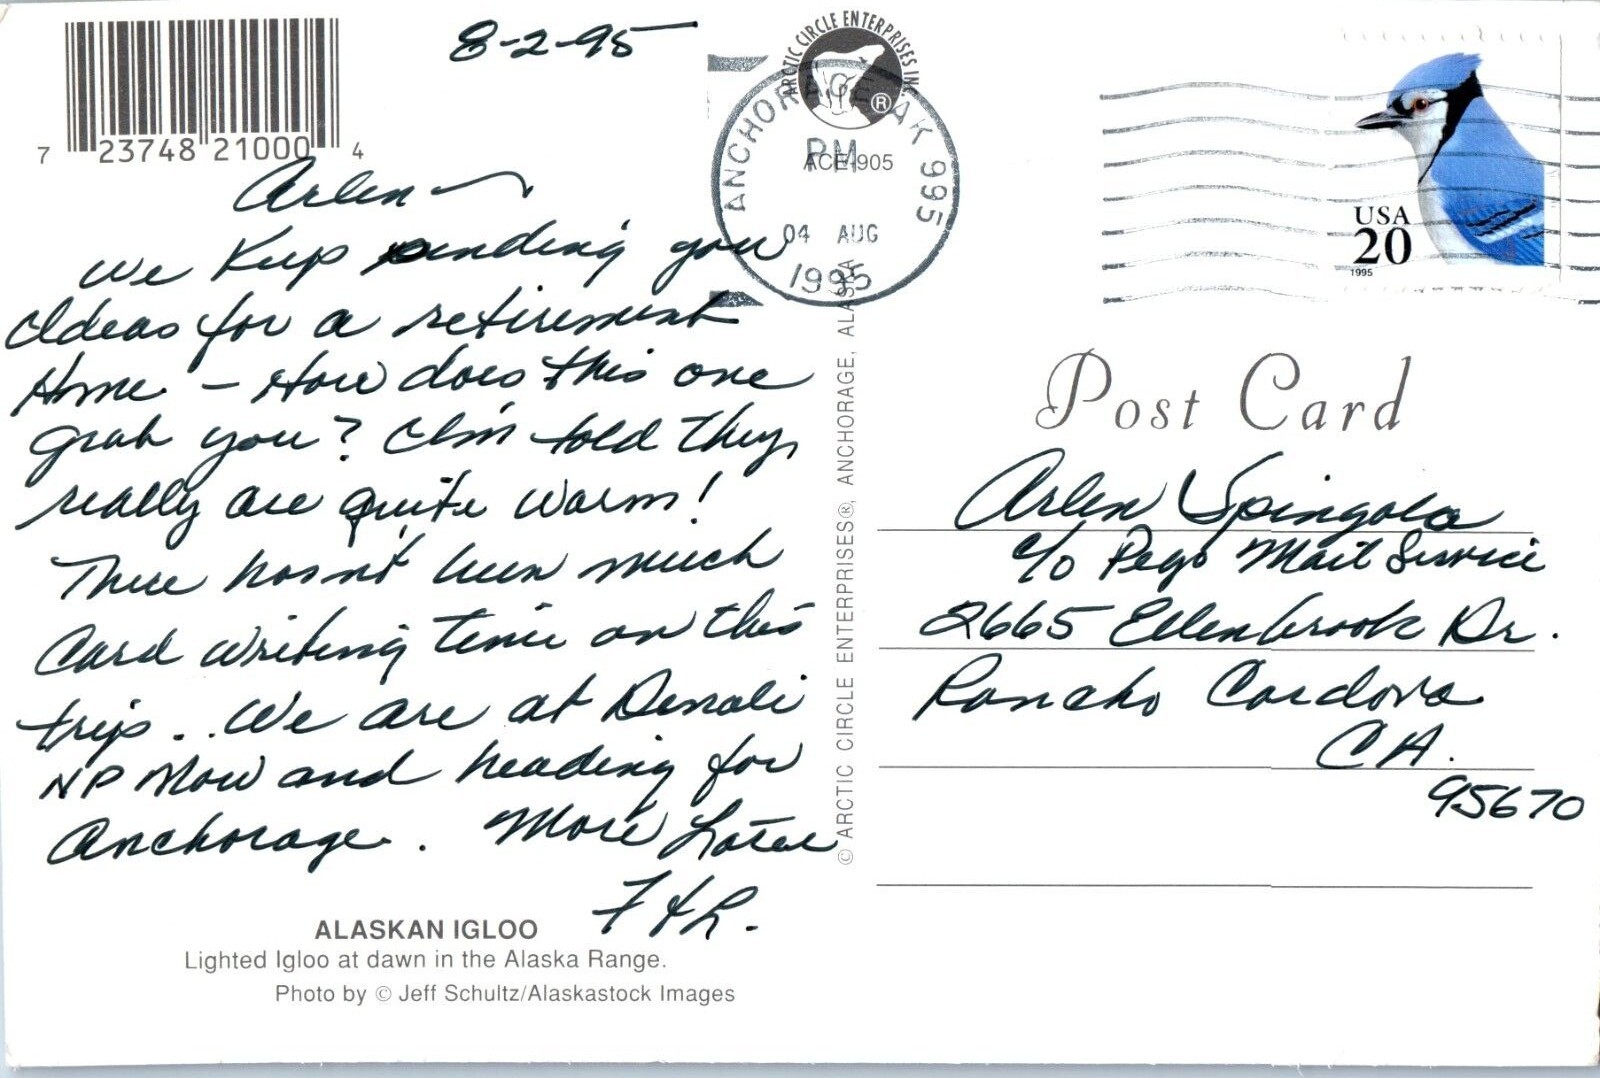 8-2-95
7 23748 21000 4
Arlen —
We Keep sending you
Ideas for a retirement
Home - How does this one
grab you? I'm told they
really are quite warm!
There hasn't been much
Card writing time on this
trip... We are at Denali
NP Now and heading for
Anchorage. More Later
F & L.
ALASKAN IGLOO
Lighted Igloo at dawn in the Alaska Range.
Photo by © Jeff Schultz/Alaskastock Images
ARCTIC CIRCLE ENTERPRISES INC.
®
ACE-905
ANCHORAGE AK 995
PM
04 AUG
1995
© ARCTIC CIRCLE ENTERPRISES®, ANCHORAGE, ALASKA
USA
20
1995
Post Card
Arlen Spingola
c/o Pego Mail Service
2665 Ellenbrook Dr.
Rancho Cordova
CA.
95670